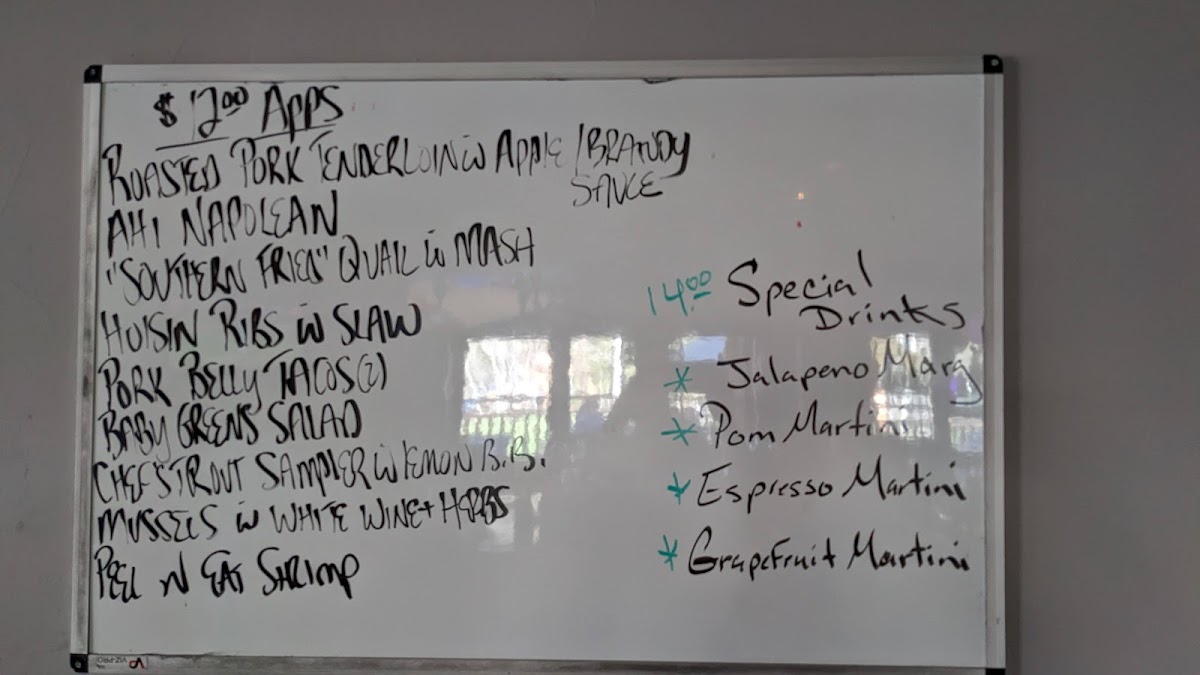 $12.00 APPS
ROASTED PORK TENDERLOIN W APPLE/BRANDY
SAUCE
AHI NAPOLEAN
"SOUTHERN FRIED" QUAIL W MASH
HOISIN RIBS W SLAW
PORK BELLY TACOS (2)
BABY GREENS SALAD
CHEF'S TROUT SAMPLER W LEMON B.B.
MUSSELS W WHITE WINE + HERBS
PEEL N EAT SHRIMP
14.00 Special
Drinks
* Jalapeno Marg
* Pom Martini
* Espresso Martini
* Grapefruit Martini
VIZ-PRO